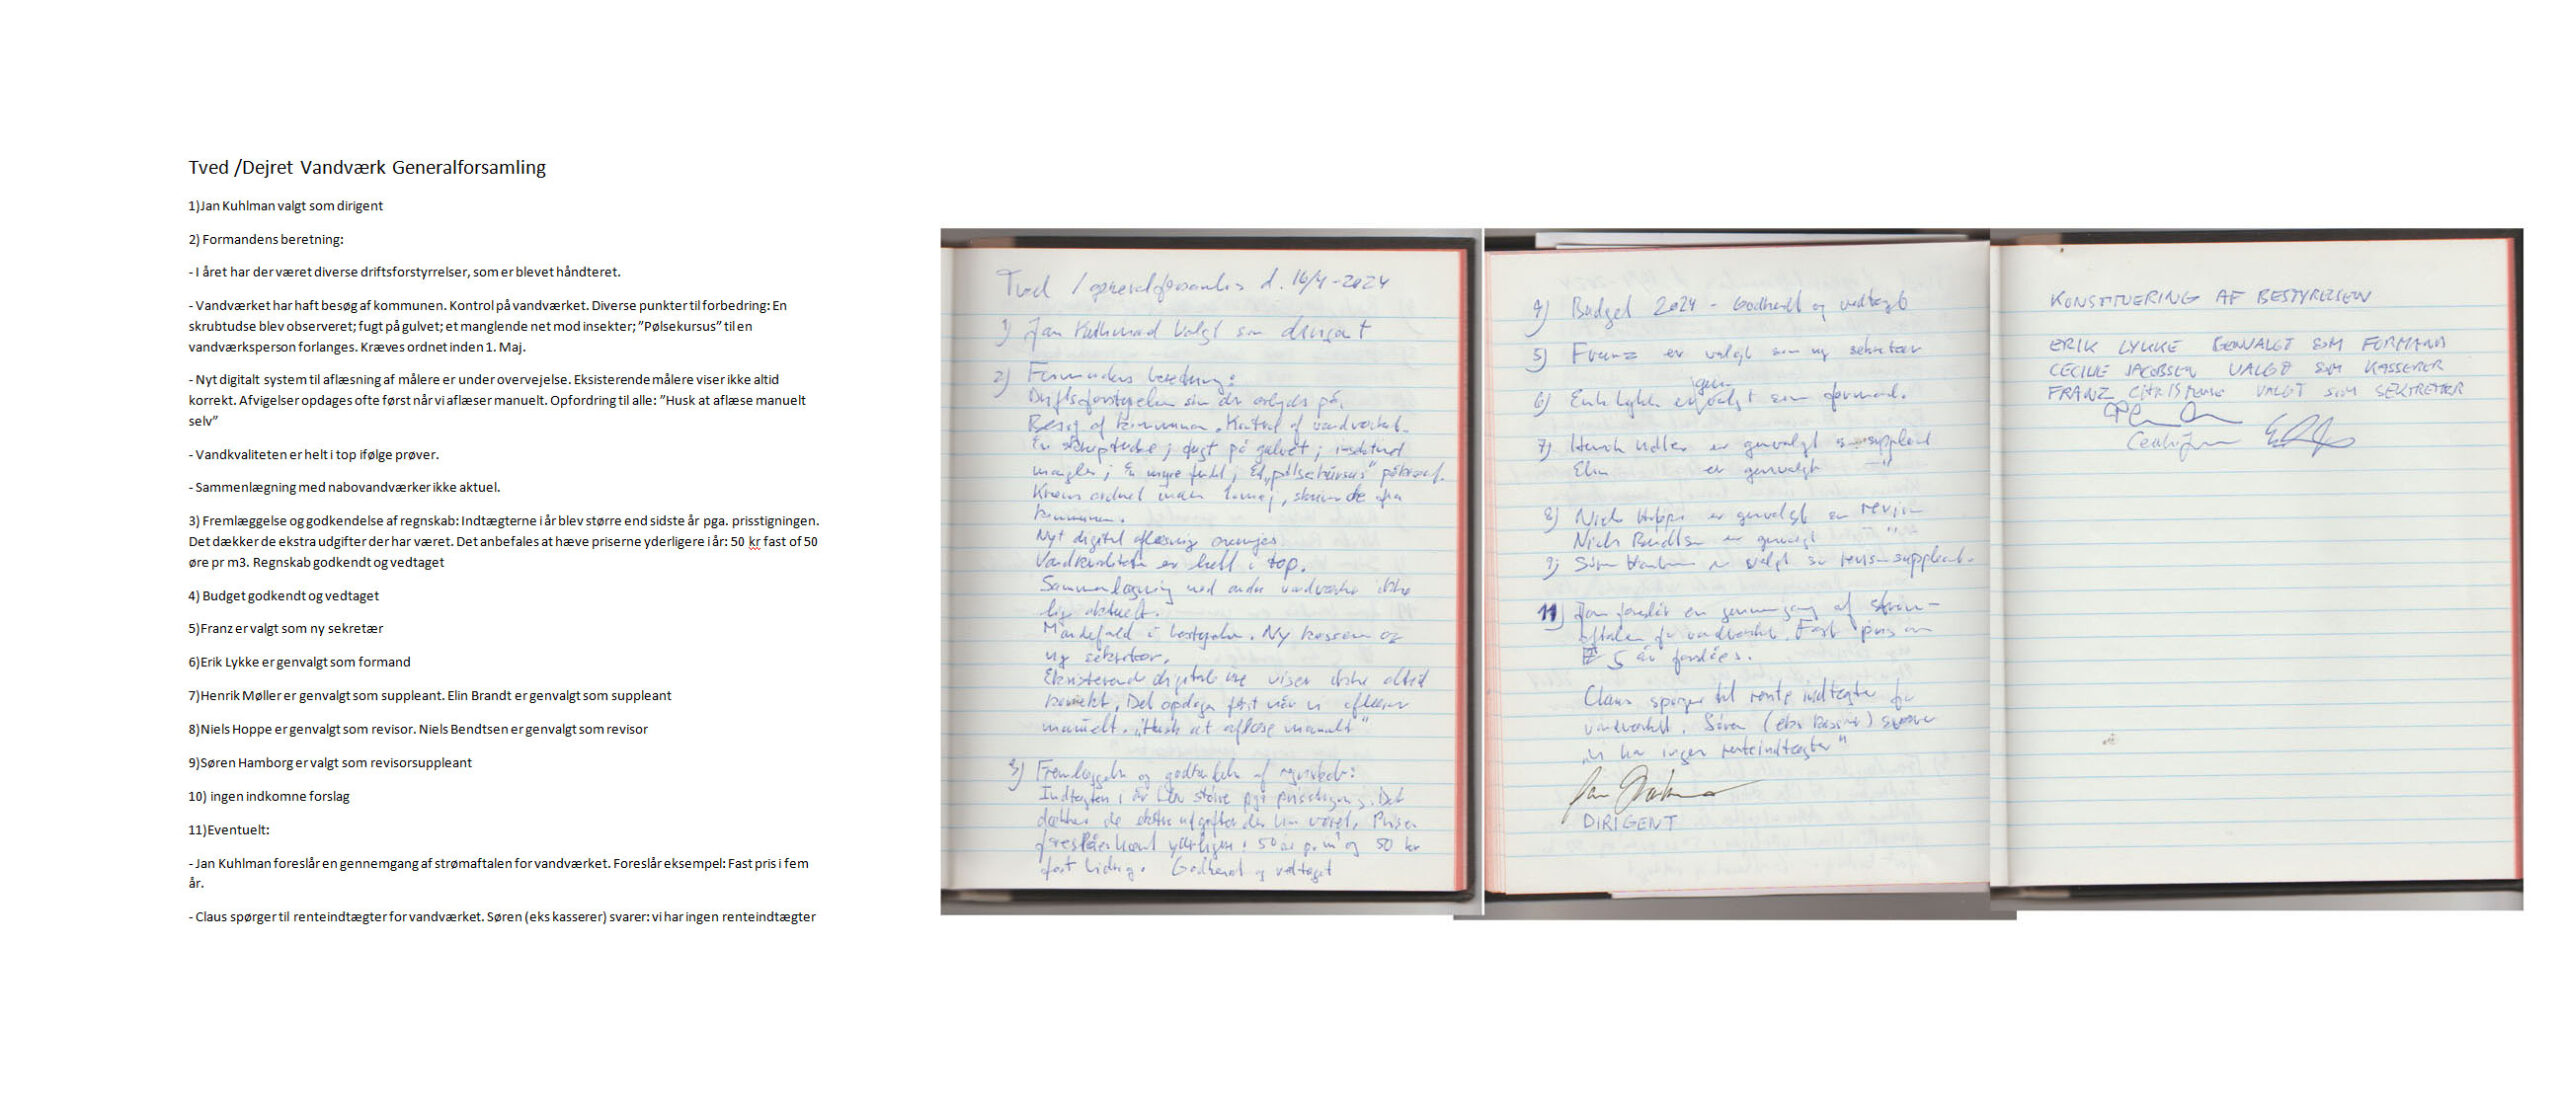 Tved /Dejret Vandværk Generalforsamling
1)Jan Kuhlman valgt som dirigent
2) Formandens beretning:
- I året har der været diverse driftsforstyrrelser, som er blevet håndteret.
- Vandværket har haft besøg af kommunen. Kontrol på vandværket. Diverse punkter til forbedring: En
skrubtudse blev observeret; fugt på gulvet; et manglende net mod insekter; ”Pølsekursus” til en
vandværksperson forlanges. Kræves ordnet inden 1. Maj.
- Nyt digitalt system til aflæsning af målere er under overvejelse. Eksisterende målere viser ikke altid
korrekt. Afvigelser opdages ofte først når vi aflæser manuelt. Opfordring til alle: ”Husk at aflæse manuelt
selv”
- Vandkvaliteten er helt i top ifølge prøver.
- Sammenlægning med nabovandværker ikke aktuel.
3) Fremlæggelse og godkendelse af regnskab: Indtægterne i år blev større end sidste år pga. prisstigningen.
Det dækker de ekstra udgifter der har været. Det anbefales at hæve priserne yderligere i år: 50 kr fast of 50
øre pr m3. Regnskab godkendt og vedtaget
4) Budget godkendt og vedtaget
5)Franz er valgt som ny sekretær
6)Erik Lykke er genvalgt som formand
7)Henrik Møller er genvalgt som suppleant. Elin Brandt er genvalgt som suppleant
8)Niels Hoppe er genvalgt som revisor. Niels Bendtsen er genvalgt som revisor
9)Søren Hamborg er valgt som revisorsuppleant
10) ingen indkomne forslag
11)Eventuelt:
- Jan Kuhlman foreslår en gennemgang af strømaftalen for vandværket. Foreslår eksempel: Fast pris i fem
år.
- Claus spørger til renteindtægter for vandværket. Søren (eks kasserer) svarer: vi har ingen renteindtægter
Tved / generalforsamling d. 16/4-2024
1) Jan valgt som dirigent
2) Formandens beretning:
Driftsforstyrrelser som der arbejdes på.
Besøg af kommunen. Kontrol af vandværket.
En skrubtudse; fugt på gulvet; insektnet
mangler; En; Et „pølsekursus"
Kræves ordnet inden 1. maj, fra
kommunen.
Nyt digital aflæsning overvejes
Vandkvaliteten er helt i top.
Sammenlægning med andre vandværker ikke
lige aktuelt.
i bestyrelsen. Ny kasserer og
ny sekretær.
Eksisterende digitale ure viser ikke altid
korrekt. Det opdages først når vi aflæser
manuelt. „Husk at aflæse manuelt"
3) Fremlæggelse og godkendelse af regnskab:
Indtægten i år blev større pga prisstigning. Det
dækker de ekstra udgifter der har været. Priser
foreslåes hævet yderligere: 50 øre pr. m³ og 50 kr
fast bidrag. Godkendt og vedtaget
4) Budget 2024 - Godkendt og vedtaget
5) Franz er valgt som ny sekretær
6) Erik Lykke er genvalgt som formand.
7) Henrik Møller er genvalgt som suppleant
Elin er genvalgt —"
8) Niels Hoppe er genvalgt som revisor
Niels Bendtsen er genvalgt "
9) Søren er valgt som revisorsuppleant.
11) Jan foreslår en gennemgang af strøm-
aftalen for vandværket. Fast pris om
5 år foreslåes.
Claus spørger til rente indtægter for
vandværket. Søren (eks kasserer) svarer
„vi har ingen renteindtægter"
DIRIGENT
KONSTITUERING AF BESTYRELSEN
ERIK LYKKE GENVALGT SOM FORMAND
CECILIE JACOBSEN VALGT SOM KASSERER
FRANZ VALGT SOM SEKRETÆR